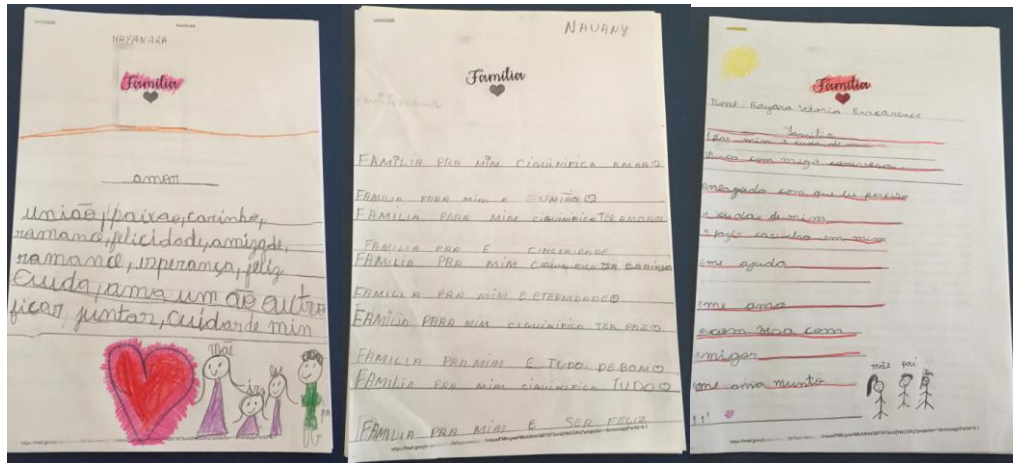 NAYANARA
Família
amor
união, paixão, carinho,
ramance, felicidade, amizade,
ramance, esperança, feliz
Cuida, ama um ao outro
ficar juntar, cuidar de min
Mãe
NAUANY
Família
FAMÍLIA PRA MÍM CIGUINIFICA AMAR
FAMÍLIA PARA MIM E UNIÃO
FAMÍLIA PRA MIM CIGUINIFICA TER AMOR
FAMÍLIA PRA E CINCERIDADE
FAMÍLIA PRA MIM CIGUINIFICA TER CARINHO
FAMILIA PRA MIM E ETERNIDADE
FAMÍLIA PARA MIM CIGUINIFICA TER PAZ
FAMILIA PAR MIM E TUDO DE BOM
FAMÍLIA PRA MIM CIGUINIFICA TUDO
FAMILIA PRA MIM E SER FELIZ
Família
Rayara Vitoria
Família
mim e cuida de
com migo conversa
que eu
cuida de mim
e fazer carinho em
me ajuda
me ama
com
amigos
me ama munto
mãe pai